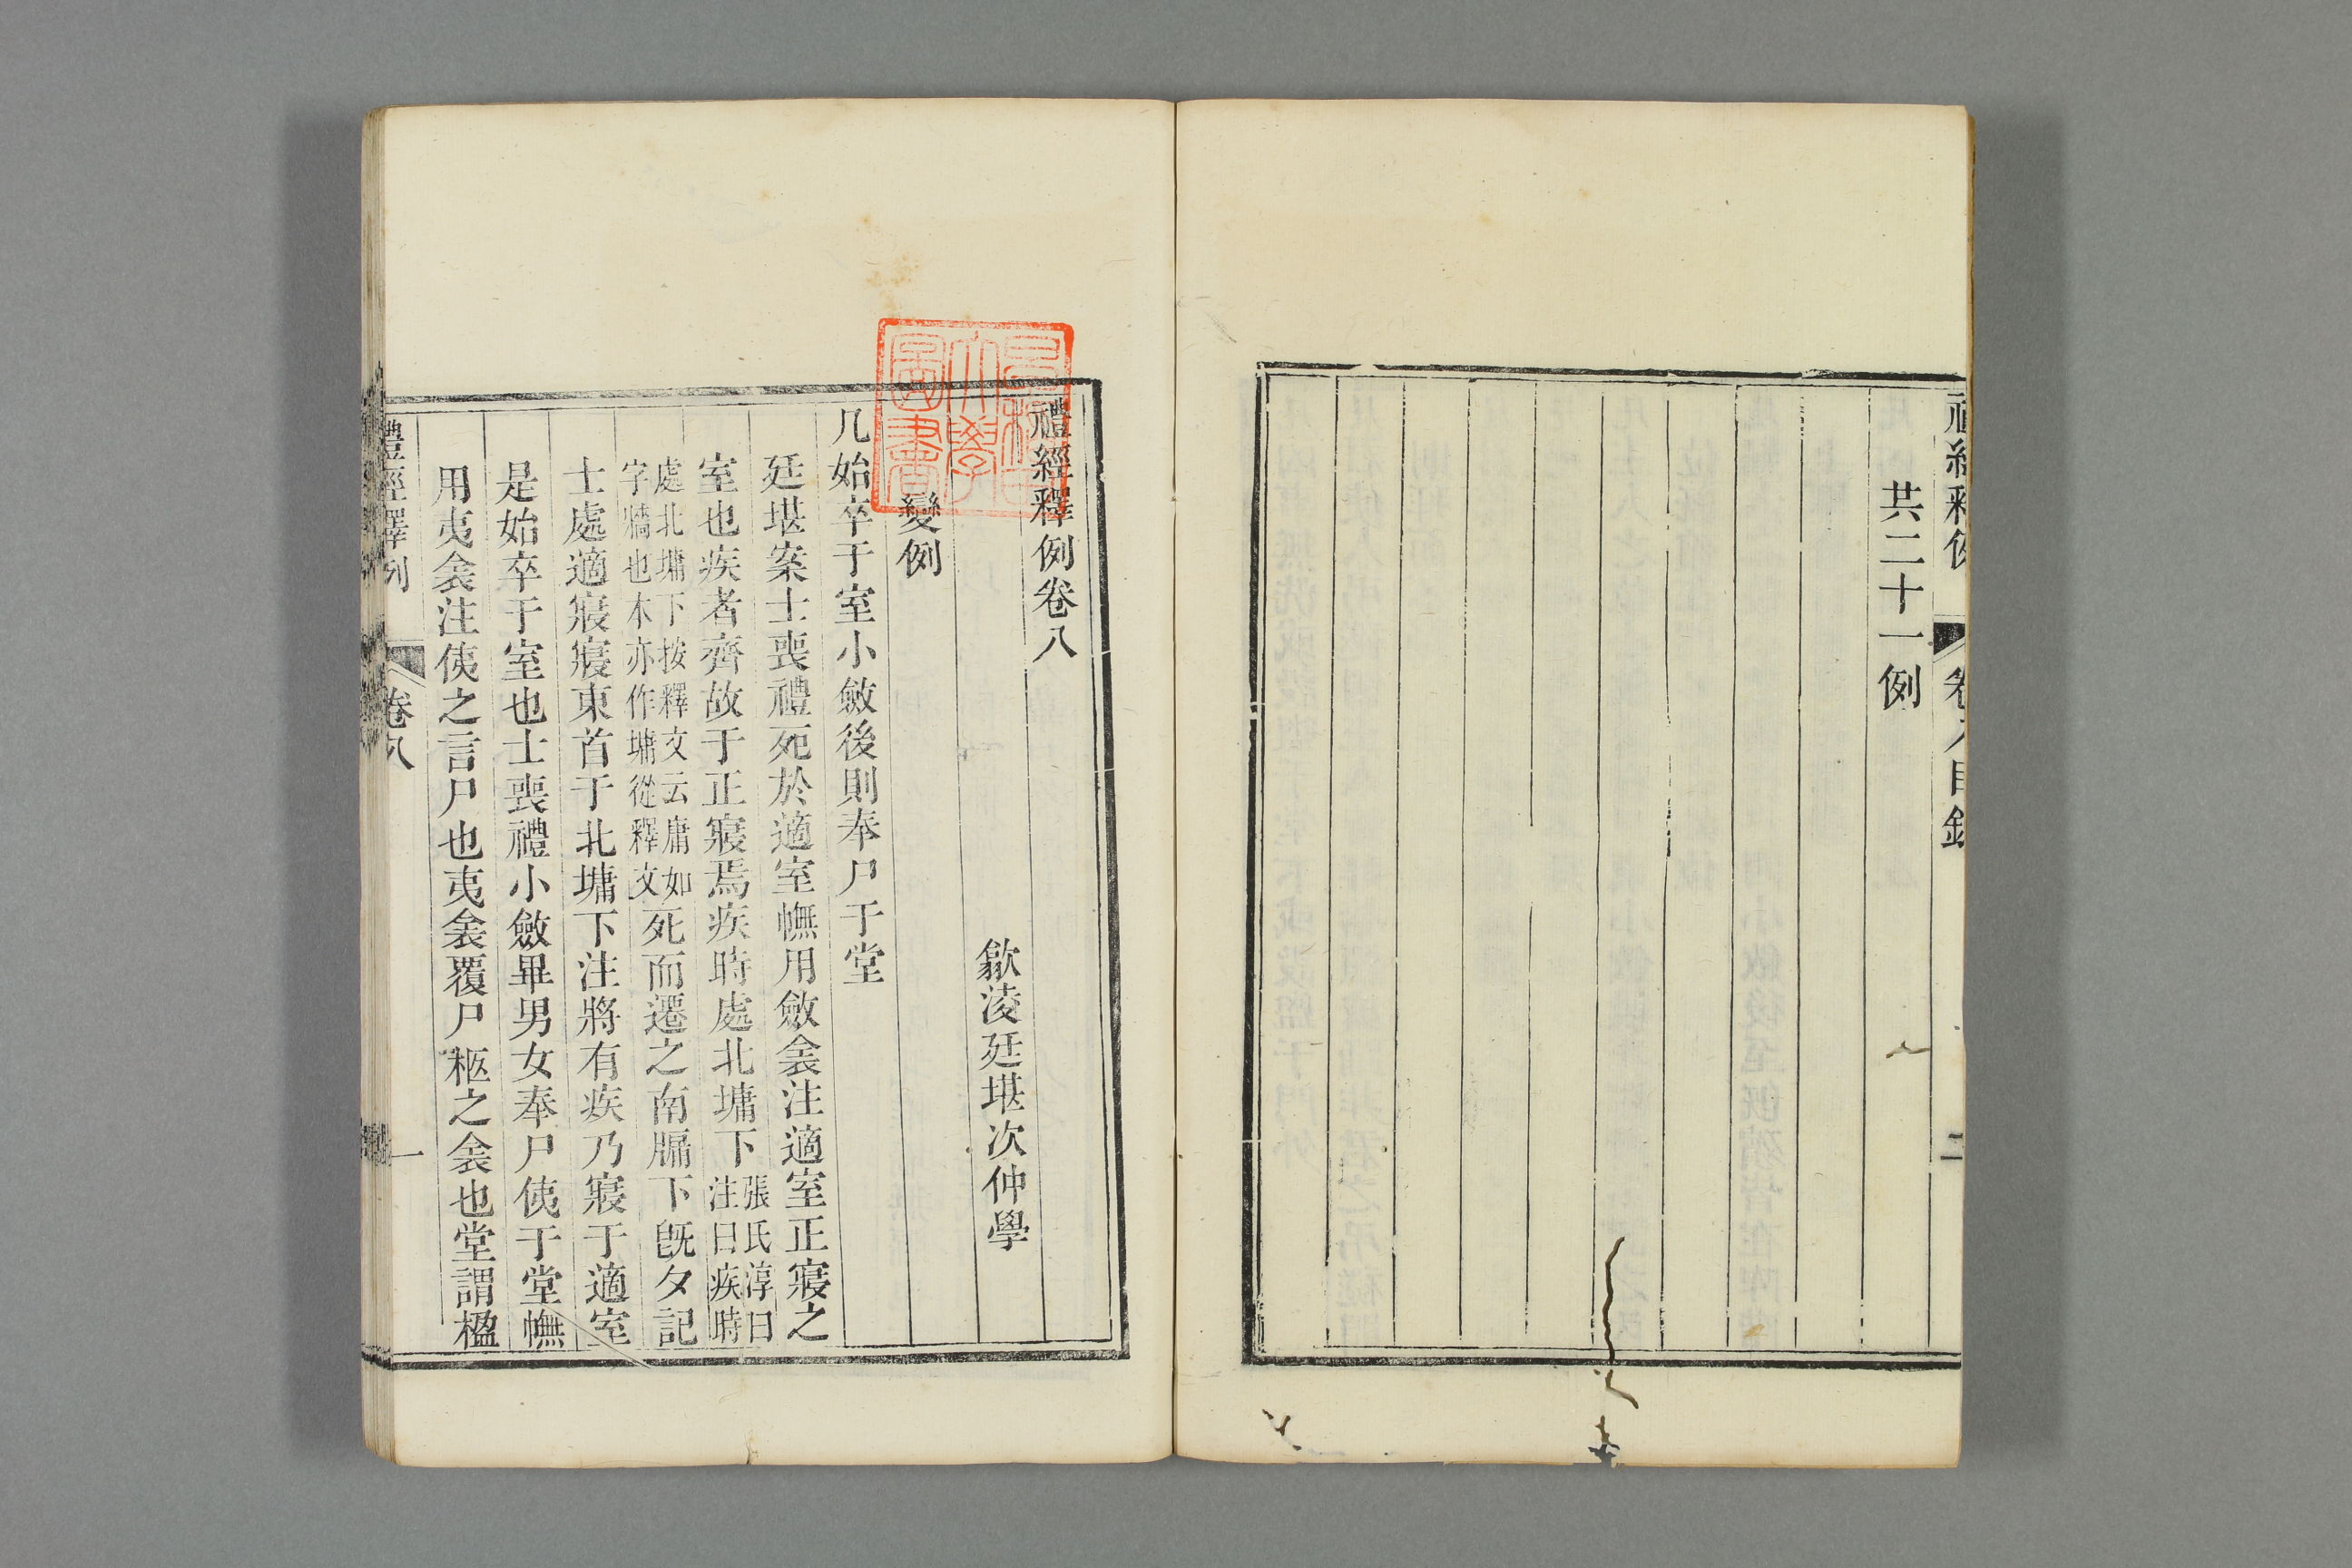 禮經釋例 卷八目錄 二
共二十一例
早稻田大學圖書
禮經釋例卷八
歙淩廷堪次仲學
變例
凡始卒于室小斂後則奉尸于堂
廷堪案士喪禮死於適室幠用斂衾注適室正寢之
室也疾者齊故于正寢焉疾時處北墉下張氏淳曰注曰疾時
處北墉下按釋文云庸如字牆也本亦作墉從釋文死而遷之南牖下旣夕記
士處適寢寢東首于北墉下注將有疾乃寢于適室
是始卒于室也士喪禮小斂畢男女奉尸侇于堂幠
用夷衾注侇之言尸也夷衾覆尸柩之衾也堂謂楹
禮經釋例 卷八 一